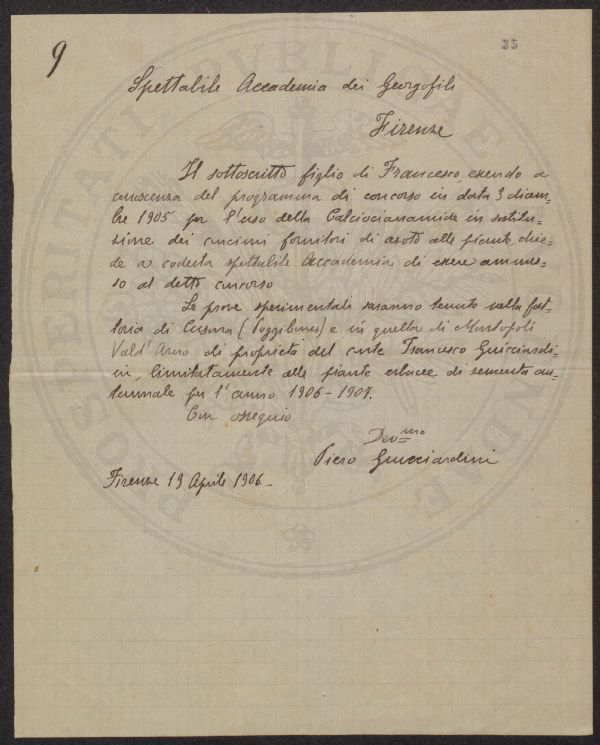 9
35
Spettabile Accademia dei Georgofili
Firenze
Il sottoscritto figlio di Francesco, essendo a
conoscenza del programma di concorso in data 3 dicem-
bre 1905 per l'uso della Calciocianamide in sostitu-
zione dei concimi fornitori di azoto alle piante, chie-
de a codesta spettabile Accademia di essere ammes-
so al detto concorso
Le prove sperimentali saranno tenute nella fat-
toria di Cusona (Poggibonsi) e in quella di Montopoli
Vald'Arno di proprietà del conte Francesco Guicciardi-
ni, limitatamente alle piante erbacee di sementa au-
tunnale per l'anno 1906-1907.
Con ossequio
Dev.mo
Piero Guicciardini
Firenze 19 Aprile 1906-
PROSPERITATI PUBLICAE